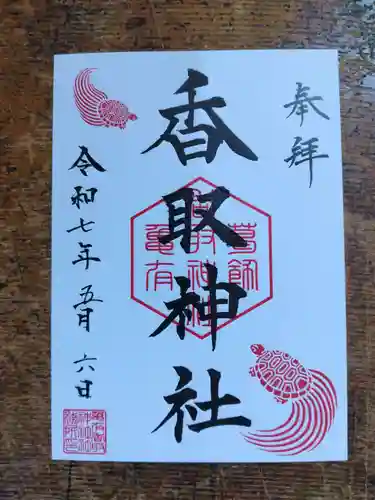 奉拝
香取神社
葛飾
香取神社
亀有
令和七年五月六日